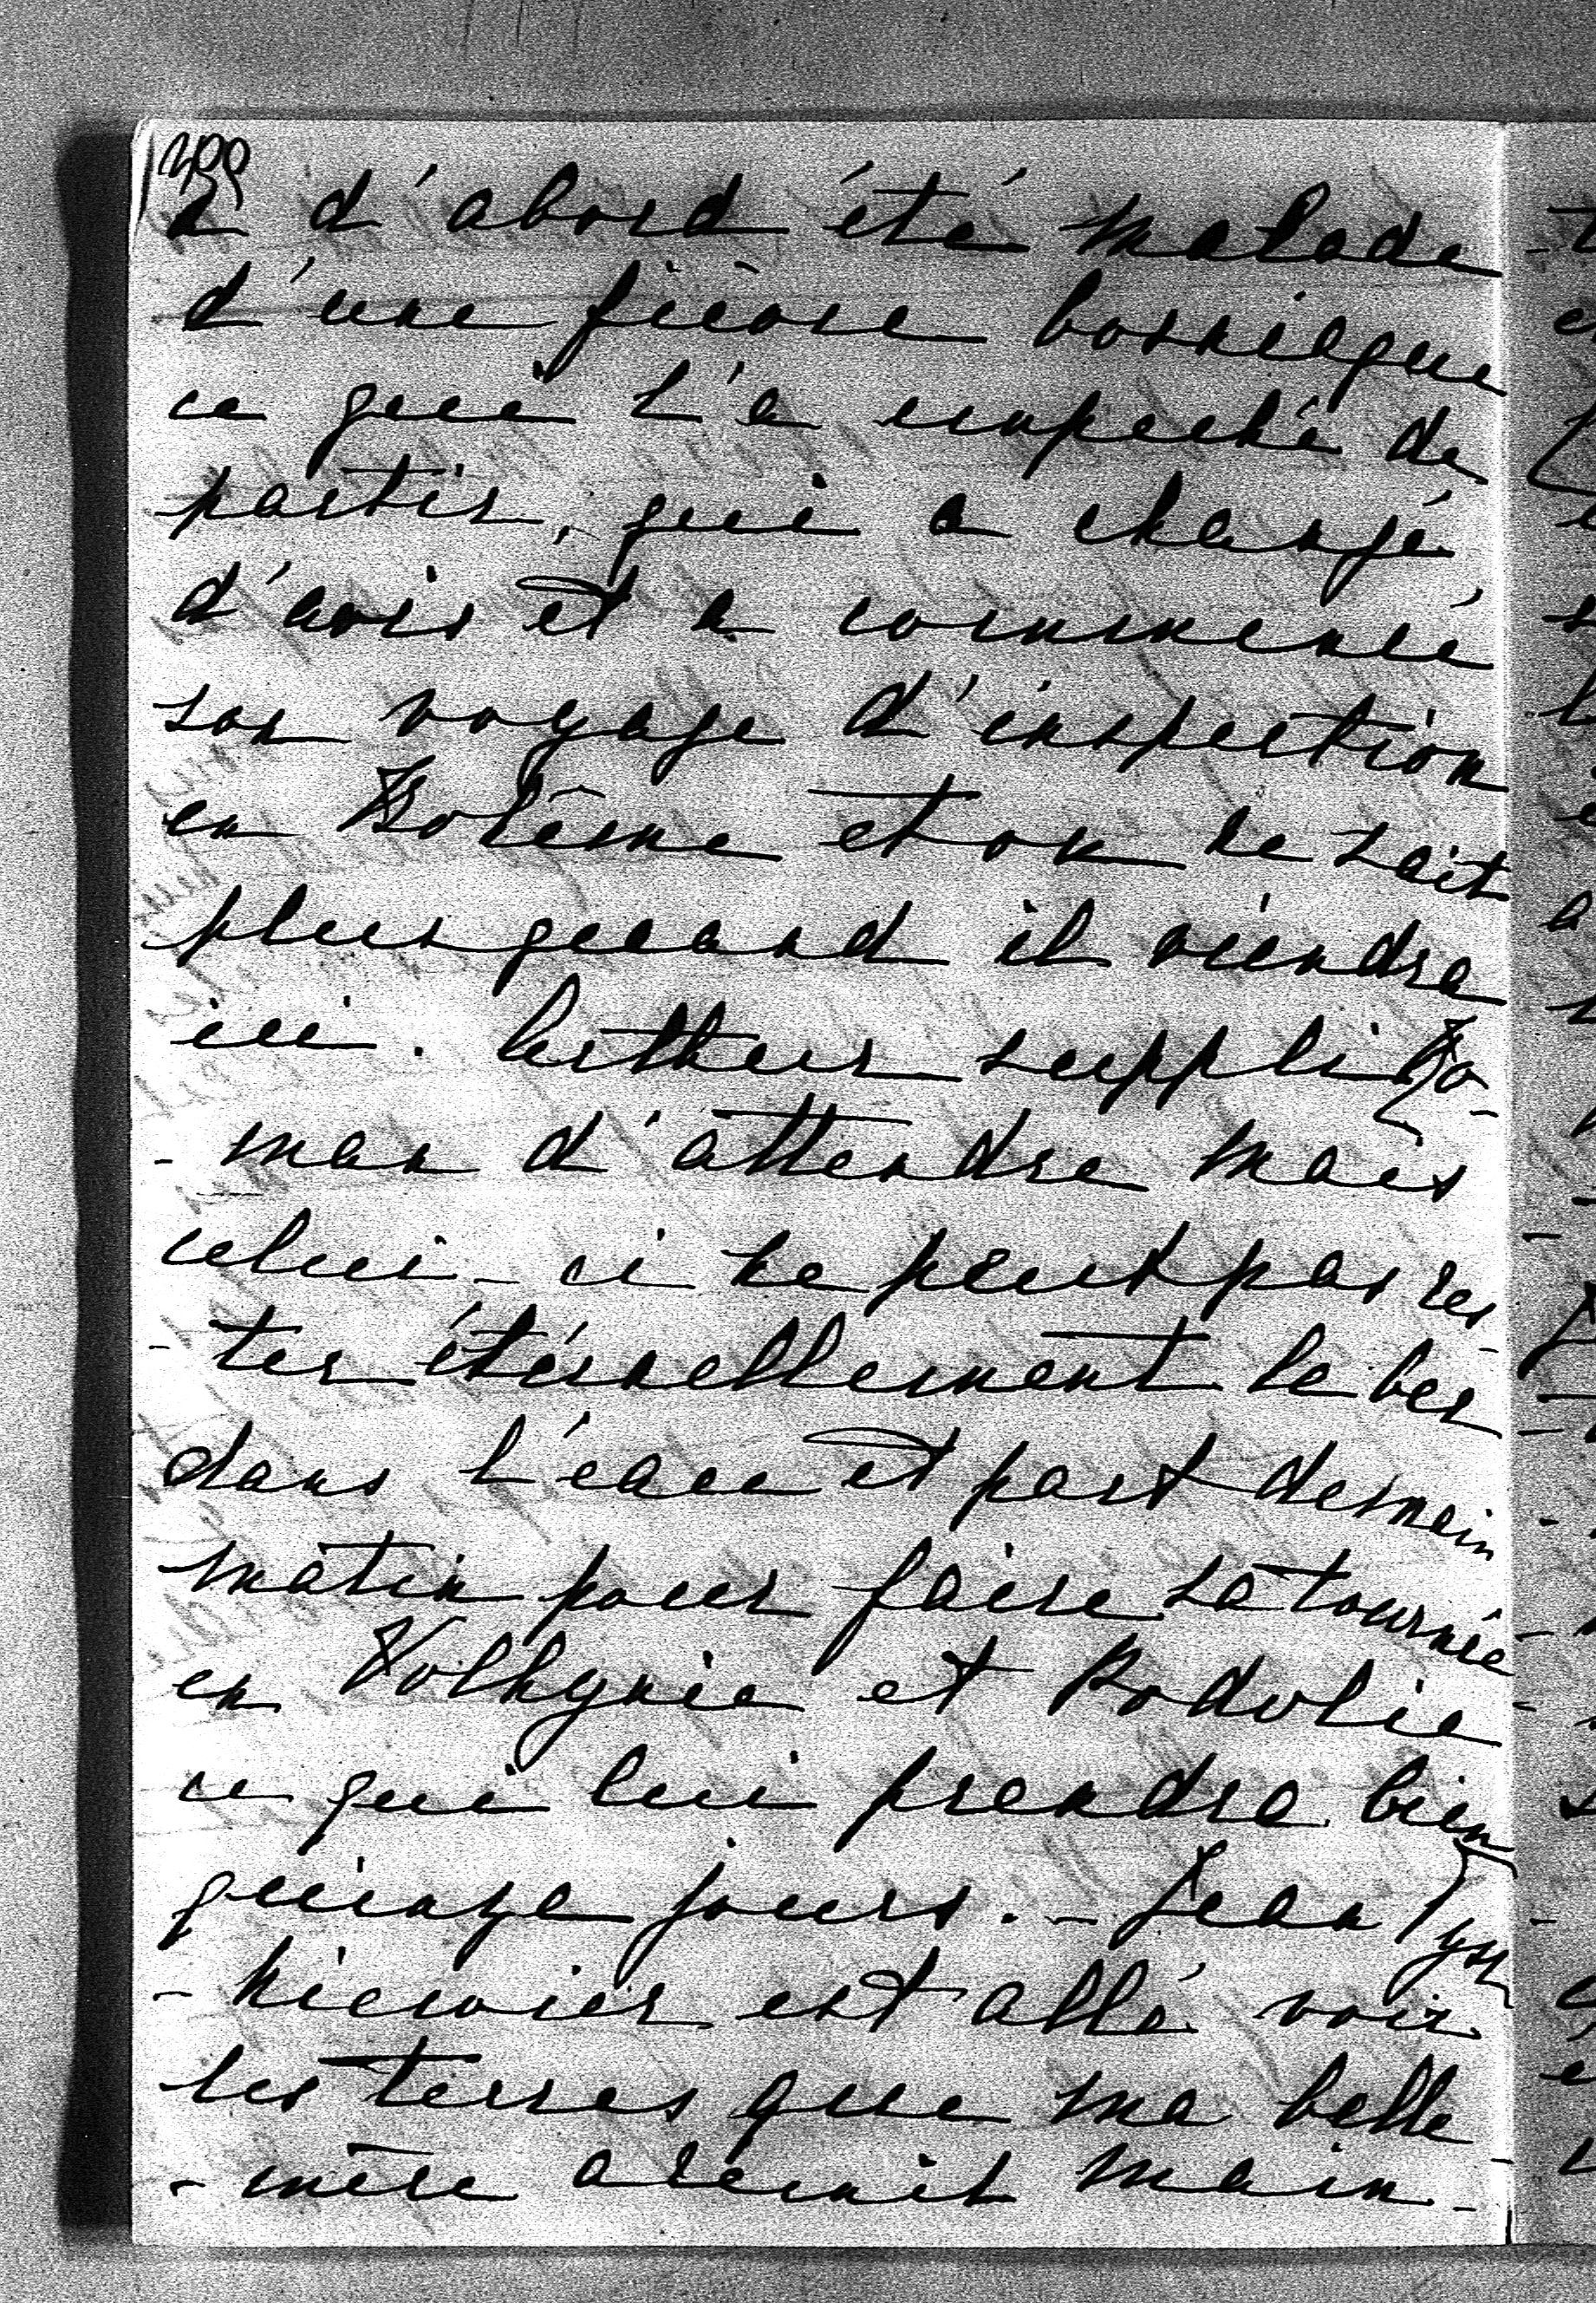 a d'abord été malade
d'une fièvre bosniaque
ce qui l'a empeché de
partir, qui a changé
d'avis et a commencé
son voyage d'inspection
en Bohême et on ne sait
plus quand il viendra
ici. Arthur supplie Ro-
- man d'attendre mais
celui-ci ne peut pas res-
- ter éternellement le bec
dans l'eau et part demain
matin pour faire sa tournée
en Volhynie et Podolie
ce qui lui prendra bien
quinze jours. - Jean Tysz
- kiewicz est allé voir
les terres que ma belle
- mère a remit main-